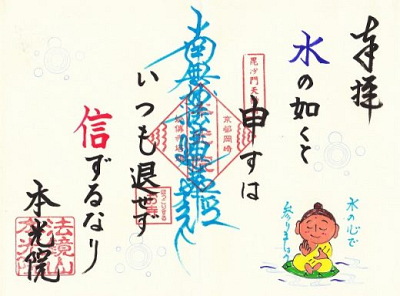 奉拝
水の如くと
申すは
南無妙法蓮華経
いつも退せず
信ずるなり
本光院
毘沙門天
京都岡崎
水の心で
参りましょう
法鏡山